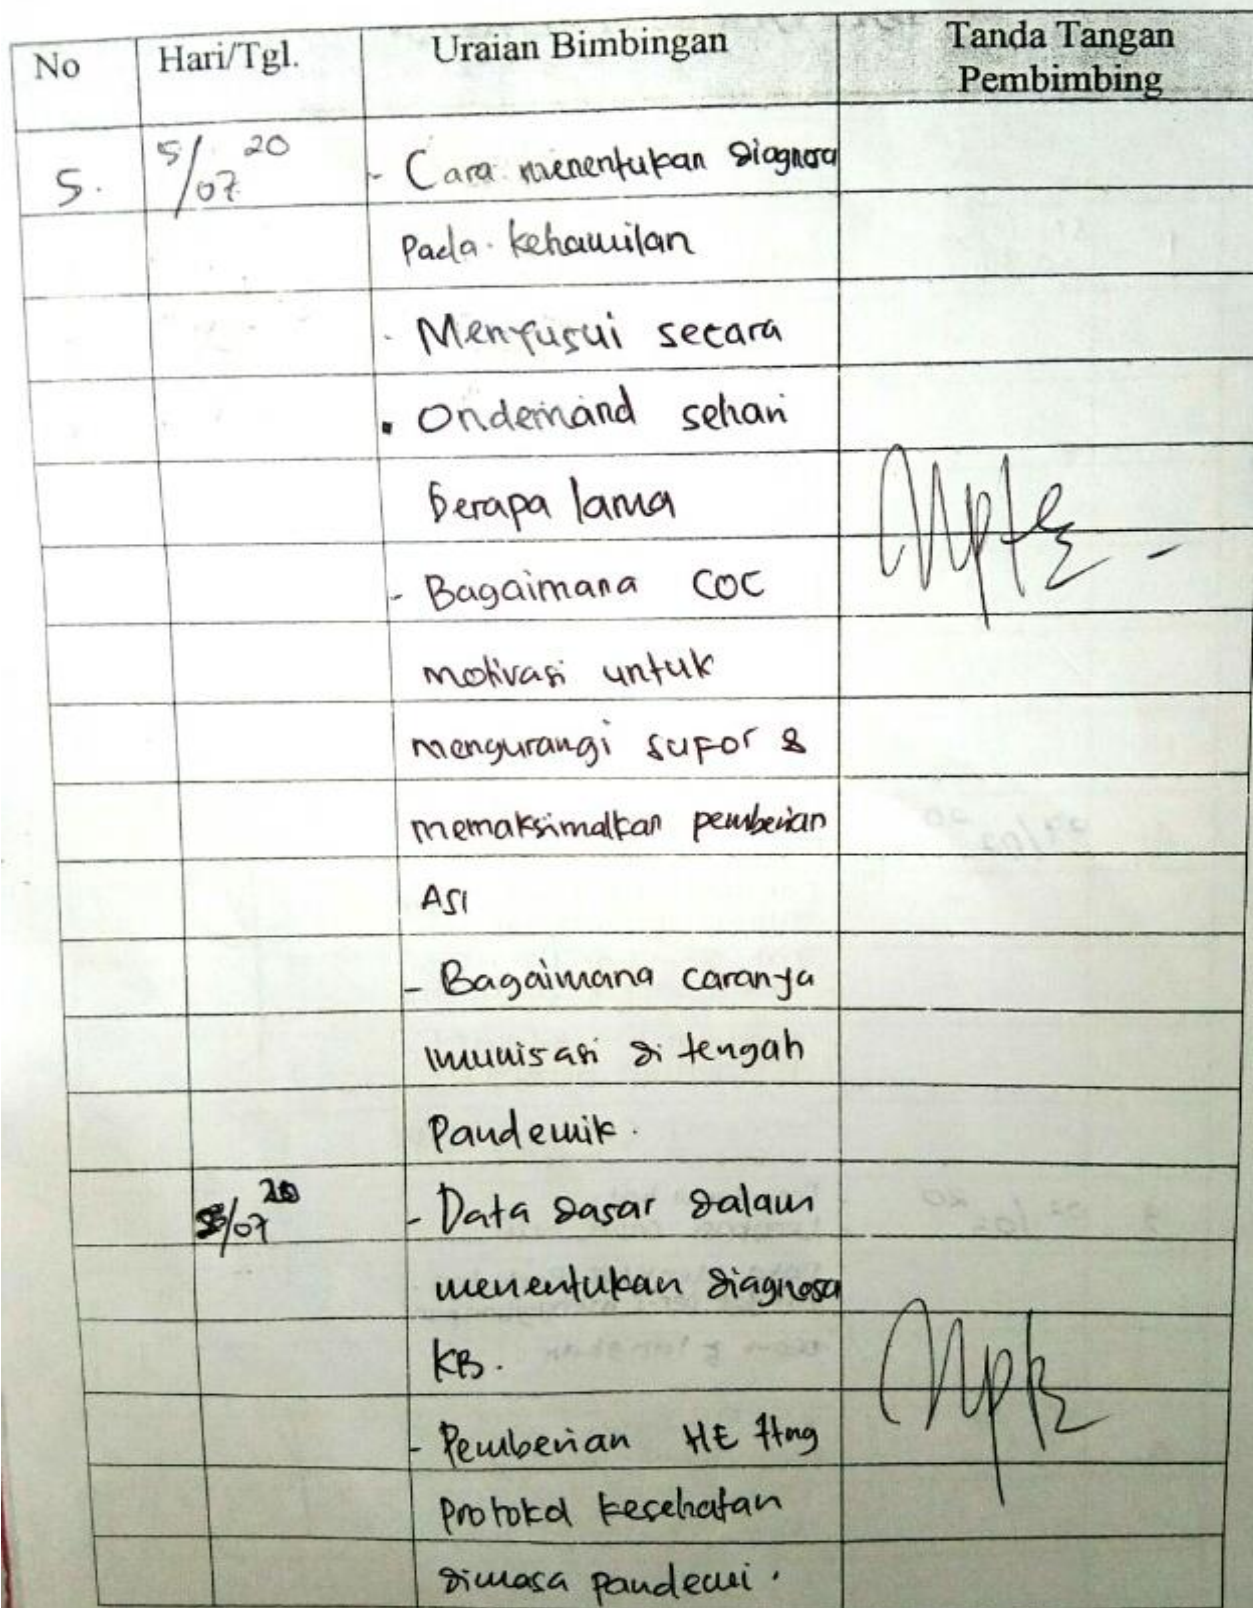 No Hari/Tgl. Uraian Bimbingan Tanda Tangan
Pembimbing
5. 5/07 20 - Cara menentukan diagnosa
Pada kehamilan
- Menyusui secara
• Ondemand sehari
berapa lama
- Bagaimana COC
motivasi untuk
mengurangi sufor &
memaksimalkan pemberian
ASI
- Bagaimana caranya
imunisasi di tengah
Pandemik.
/07 20 - Data dasar dalam
menentukan diagnosa
KB.
- Pemberian HE ttng
Protokol kesehatan
dimasa pandemi.